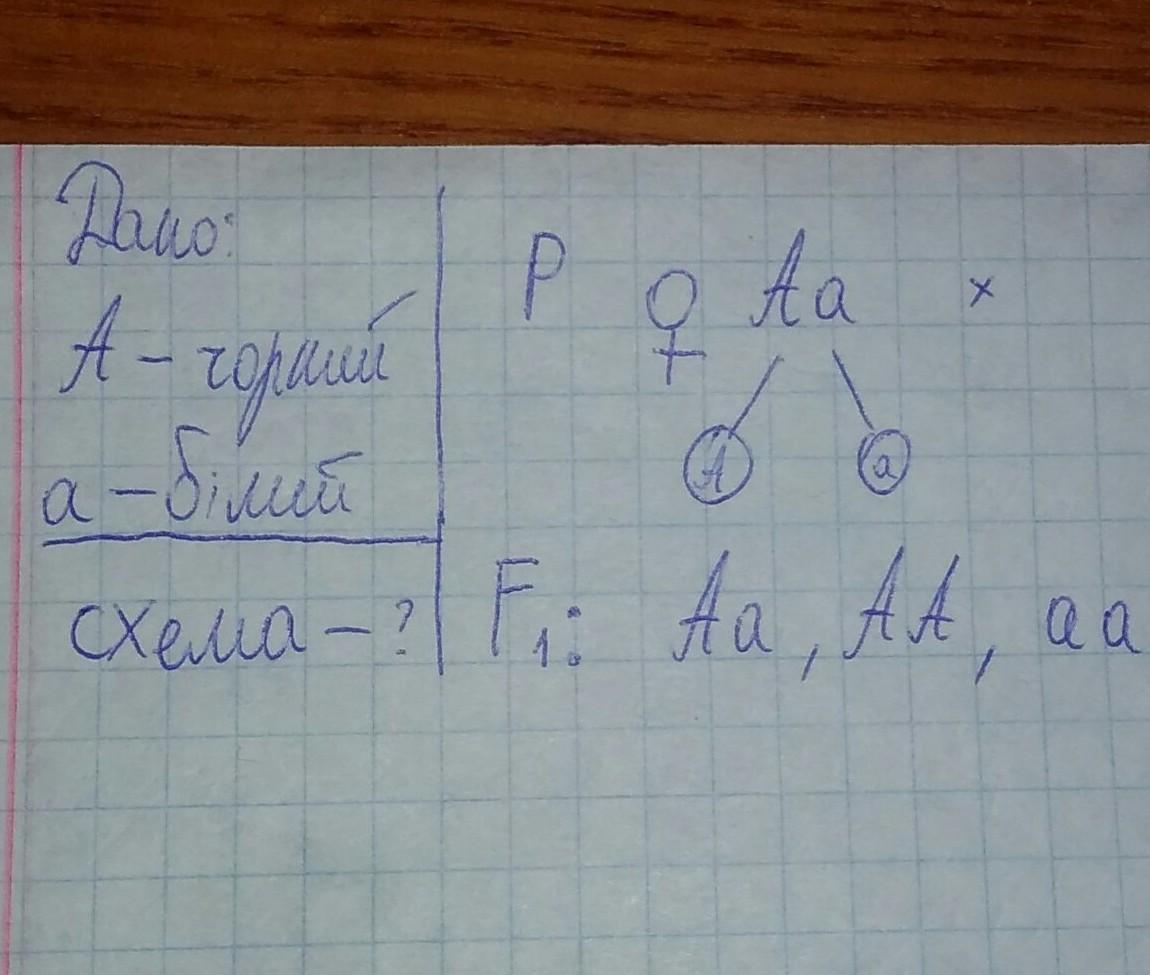 Дано:
А – чорний
а – білий
схема – ?
P ♀ Aa ×
A a
F₁: Aa, AA, aa